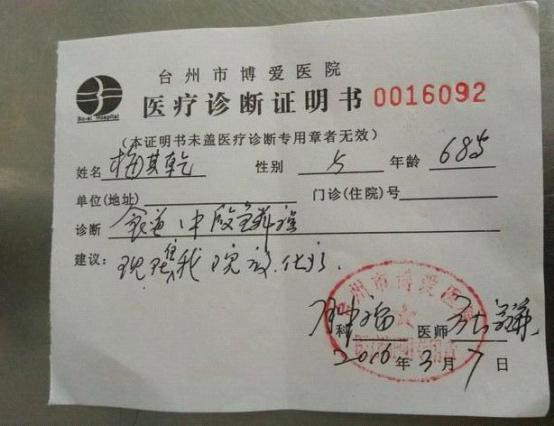 台州市博爱医院
Bo-ai Hospital
医疗诊断证明书 0016092
(本证明书未盖医疗诊断专用章者无效)
姓名 梅其乾 性别 年龄 68岁
单位(地址) 门诊(住院)号
诊断 食道中段
建议: 现住我院放化疗.
台州市博爱医院
肿瘤 科 医师
2016年3月7日